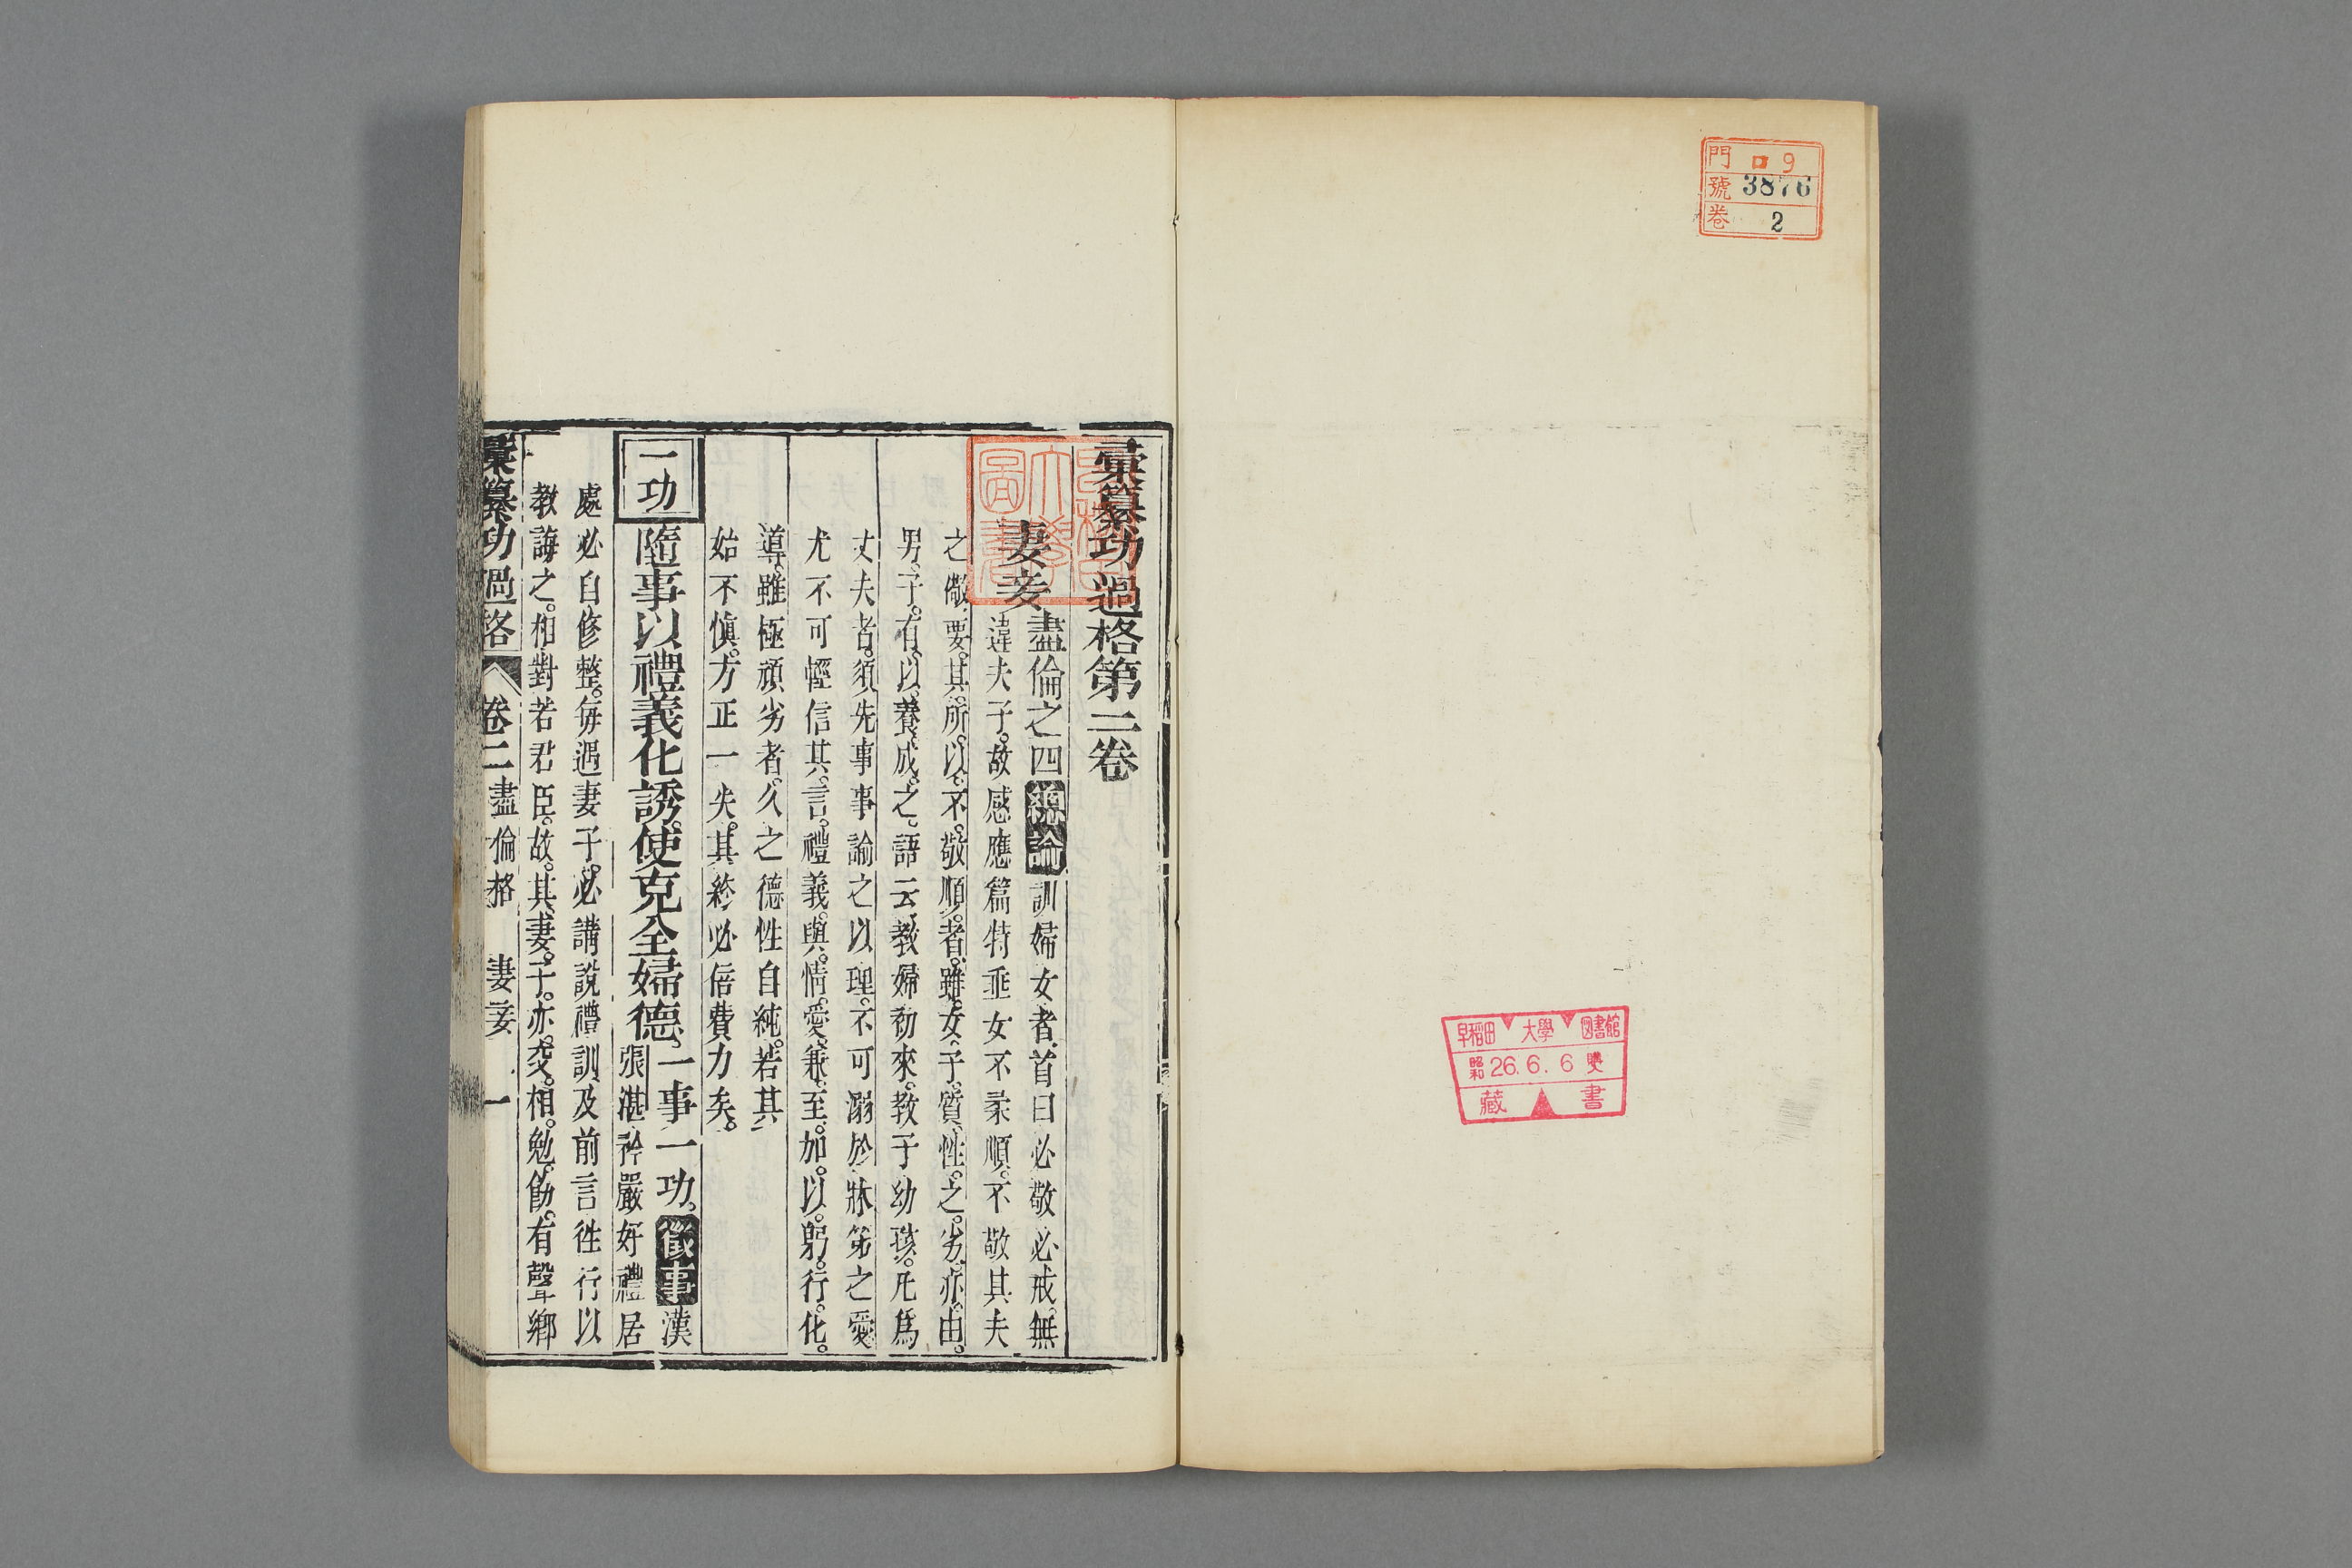 門 ロ 9
號 3876
卷 2
早稻田 大學 図書館
昭和 26.6.6 購
藏 書
彙纂功過格第二卷
妻妾 盡倫之四 總論 訓婦女者首曰必敬必戒。無
違夫子。故感應篇特垂女不柔順。不敬其夫
之儆。要其所以不敬順者。雖女子質性之劣。亦由
男子有以養成之。語云教婦初來。教子幼孩。凡爲
丈夫者。須先事事諭之以理。不可溺於牀笫之愛
尤不可輕信其言。禮義與情愛兼至。加以躬行化
導。雖極頑劣者。久之德性自純。若其
始不愼。方正一失。其終必倍費力矣。
一功 隨事以禮義化誘。使克全婦德。一事一功。徵事 漢
張湛矜嚴好禮居
處必自修整。每遇妻子。必講說禮訓及前言往行以
教誨之。相對若君臣。故其妻子亦交相勉飭。有聲鄉
彙纂功過格 卷二 盡倫格 妻妾 一
早稻田大學圖書